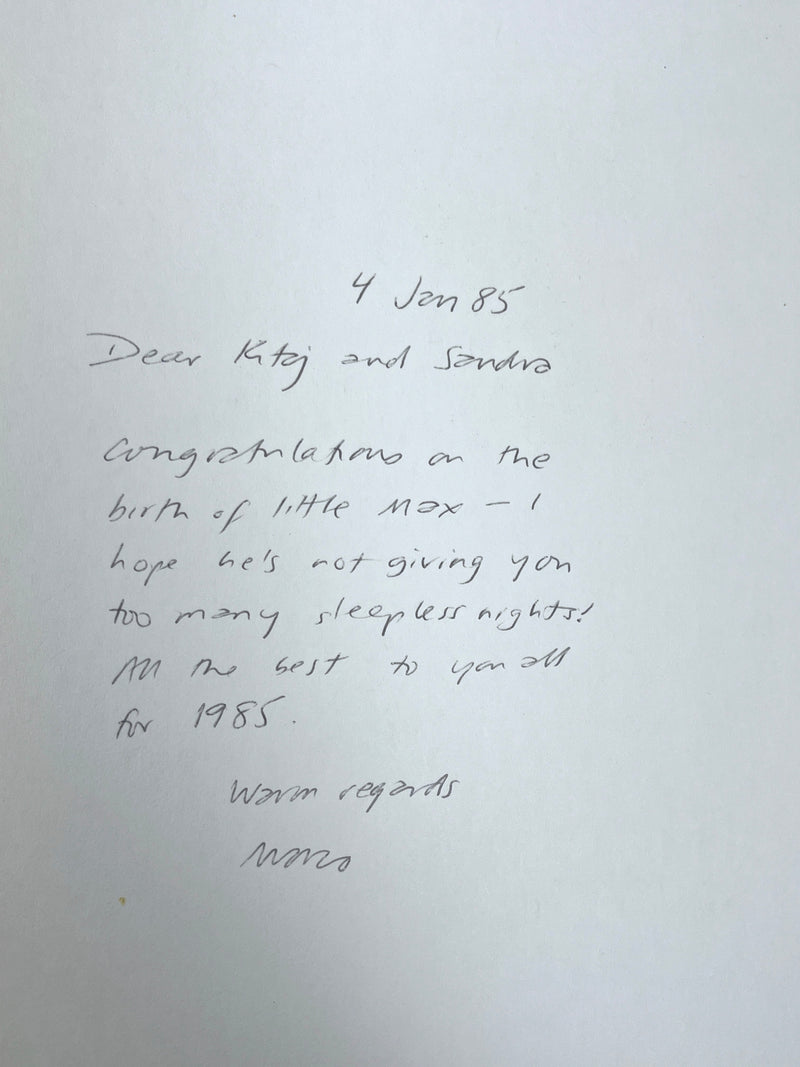 4 Jan 85
Dear Kitaj and Sandra
Congratulations on the
birth of little Max – I
hope he's not giving you
too many sleepless nights!
All the best to you all
for 1985.
Warm regards
Marco